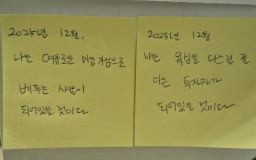 2024년 12월,
나는 여유로운 마음가짐으로
베푸는 사람이
되어있을 것이다.
2025년 12월
나는 욕심을 다스릴 줄
아는 투자자가
되어있을 것이다.